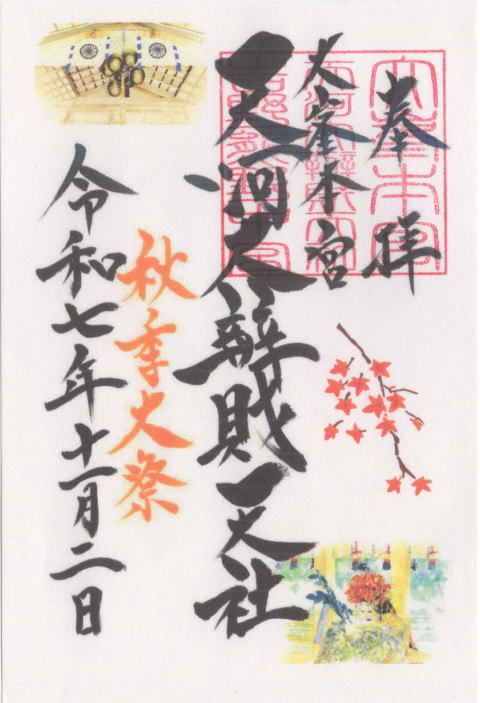 奉拝
大峯本宮
天河大辨財天社
秋季大祭
令和七年十一月二日